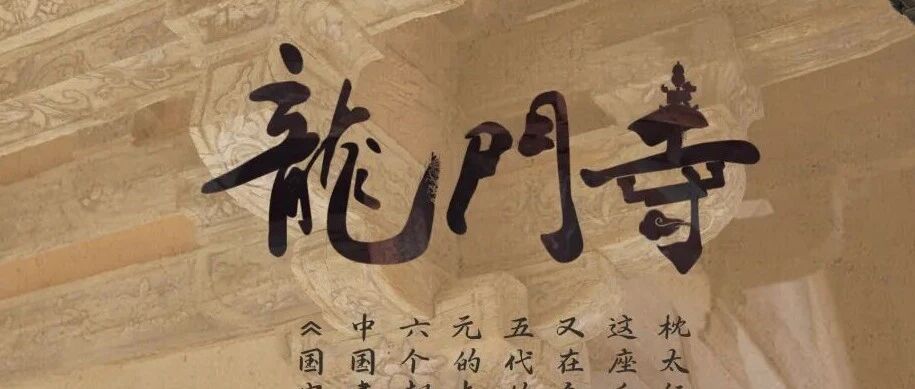 龍門寺
枕太行
这座
又在
五代
元的
六个
中国
《国